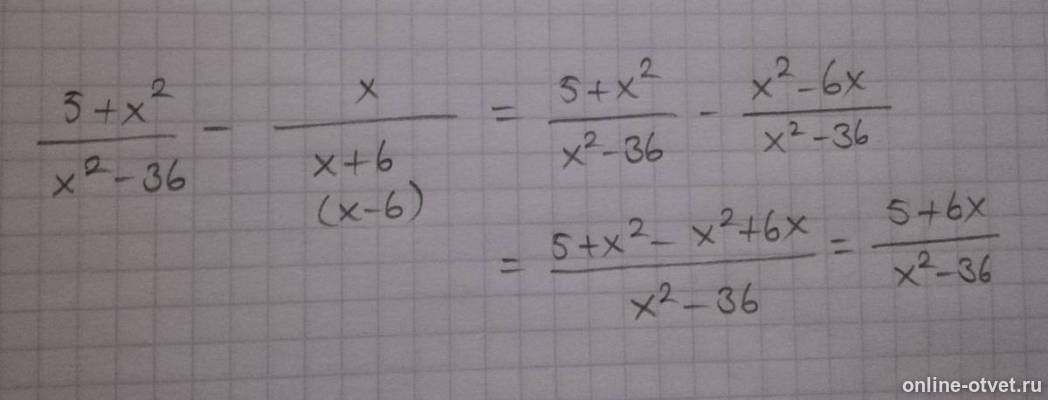 (5+x²)/(x²-36) - x/(x+6) = (5+x²)/(x²-36) - (x²-6x)/(x²-36)
(x-6)
= (5+x²-x²+6x)/(x²-36) = (5+6x)/(x²-36)
online-otvet.ru